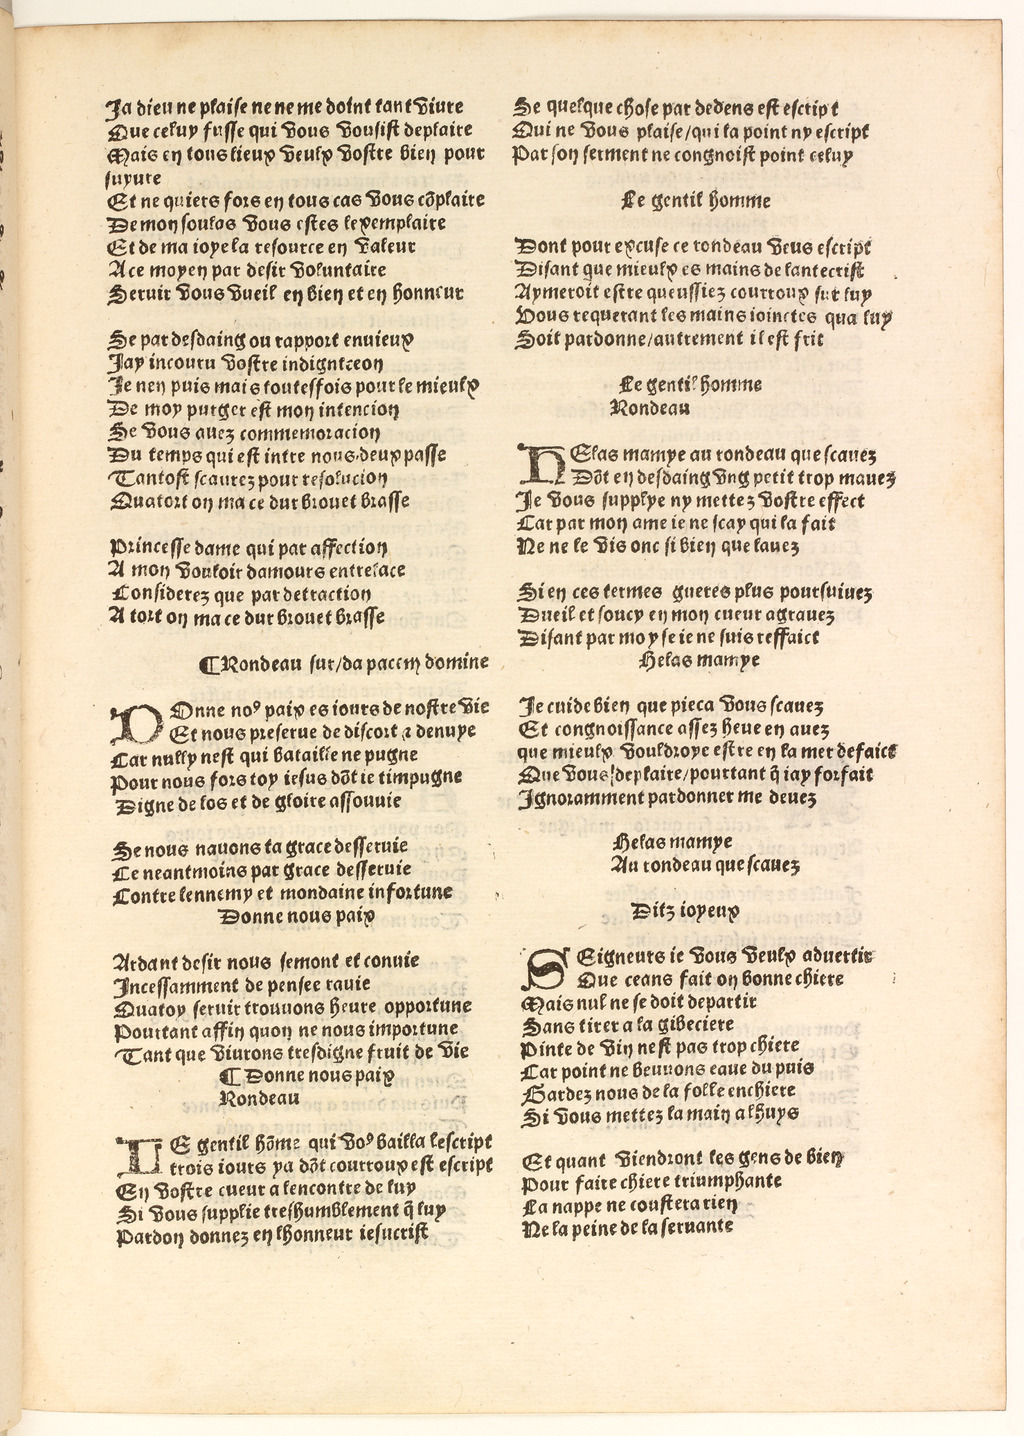 Ja dieu ne plaise ne ne me doint tant viure
Que celuy fusse qui vous vousist deplaire
Mais en tous lieux veulx vostre bien pour
suyure
Et ne quiers fors en tous cas vous cõplaire
De mon soulas vous estes lexemplaire
Et de ma ioye la resource en valeur
A ce moyen par desir voluntaire
Seruir vous vueil en bien et en honneur
Se par desdaing ou rapport enuieux
Jay incouru vostre indignteon
Je nen puis mais toutesfois pour le mieulx
De moy purger est mon intencion
Se vous auez commemoracion
Du temps qui est intre nous deux passe
Tantost scaurez pour resolucion
Quatort on ma ce dur brouet brasse
Princesse dame qui par affection
A mon vouloir damours entrelace
Considerez que par detraction
A tort on ma ce dur brouet brasse
¶ Rondeau sur/da pacem domine
DOnne noꝰ paix es iours de nostre vie
Et nous preserue de discort ⁊ denuye
Car nully nest qui bataille ne pugne
Pour nous fors toy iesus dõt ie timpugne
Digne de los et de gloire assouuie
Se nous nauons ta grace desseruie
Ce neantmoins par grace desseruie
Contre lennemy et mondaine infortune
Donne nous paix
Ardant desir nous semont et conuie
Incessamment de pensee rauie
Quatoy seruir trouuons heure opportune
Pourtant affin quon ne nous importune
Tant que viurons tresdigne fruit de vie
¶ Donne nous paix
Rondeau
LE gentil hõme qui voꝰ bailla lescript
trois iours ya dõt courroux est escript
En vostre cueur a lencontre de luy
Si vous supplie treshumblement q̃ luy
Pardon donnez en lhonneur iesucrist
Se quelque chose par dedens est escript
Qui ne vous plaise/qui la point ny escript
Par son serment ne congnoist point celuy
Le gentil homme
Dont pour excuse ce rondeau veus escript
Disant que mieulx es mains de lantecrist
Aymeroit estre queussiez courroux sur luy
Vous requerant les mains ioinctes qua luy
Soit pardonne/autrement il est frit
Le gentil homme
Rondeau
HElas mamye au rondeau que scauez
Dõt en desdaing vng petit trop mauez
Je vous supplye ny mettez vostre effect
Car par mon ame ie ne scay qui la fait
Ne ne le vis onc si bien que lauez
Si en ces termes gueres plus poursuiuez
Dueil et soucy en mon cueur agrauez
Disant par moy se ie ne suis reffaict
Helas mamye
Je cuide bien que pieca vous scauez
Et congnoissance assez heue en auez
que mieulx vouldroye estre en la mer defaict
Que vous deplaire/pourtant q̃ iay forfait
Ignoramment pardonner me deuez
Helas mamye
Au rondeau que scauez
Ditz ioyeux
SEigneurs ie vous veulx aduertir
Que ceans fait on bonne chiere
Mais nul ne se doit departir
Sans tirer a la gibeciere
Pinte de vin nest pas trop chiere
Car point ne beuuons eaue du puis
Gardez nous de la folle enchiere
Si vous mettez la main a lhuys
Et quant viendront les gens de bien
Pour faire chiere triumphante
La nappe ne coustera rien
Ne la peine de la seruante